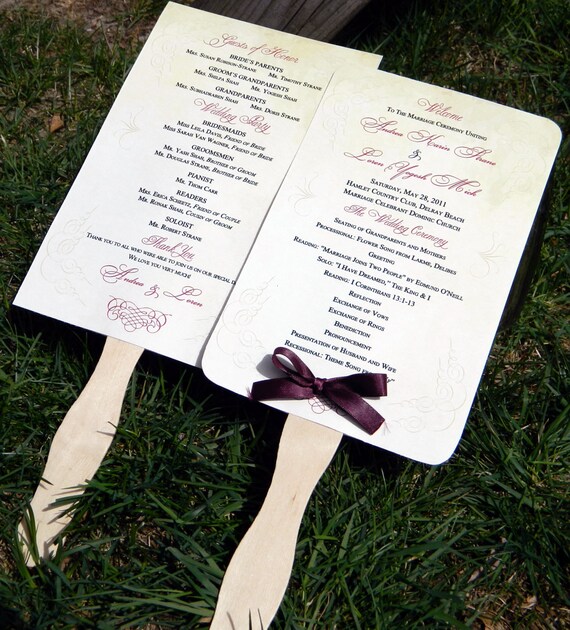 Guests of Honor
Bride's Parents
Mrs. Susan Robison-Strane Mr. Timothy Strane
Groom's Grandparents
Mrs. Shilpa Shah Mr. Yogesh Shah
Grandparents
Mrs. Subhadraben Shah Mrs. Doris Strane
Wedding Party
Bridesmaids
Miss Leila Davis, Friend of Bride
Miss Sarah Van Wagner, Friend of Bride
Groomsmen
Mr. Yash Shah, Brother of Groom
Mr. Douglas Strane, Brother of Bride
Pianist
Mr. Thom Carr
Readers
Mrs. Erica Schietz, Friend of Couple
Mr. Ronak Shah, Cousin of Groom
Soloist
Mr. Robert Strane
Thank You
Thank you to all who were able to join us on our special
We love you very much!
Andrea & Loren
Welcome
To The Marriage Ceremony Uniting
Andrea Karin Strane
&
Loren Yogesh
Saturday, May 28, 2011
Hamlet Country Club, Delray Beach
Marriage Celebrant Dominic Church
The Wedding Ceremony
Seating of Grandparents and Mothers
Processional: Flower Song from Lakme, Delibes
Greeting
Reading: "Marriage Joins Two People" by Edmund O'Neill
Solo: "I Have Dreamed," The King & I
Reading: I Corinthians 13:1-13
Reflection
Exchange of Vows
Exchange of Rings
Benediction
Pronouncement
Presentation of Husband and Wife
Recessional: Theme Song